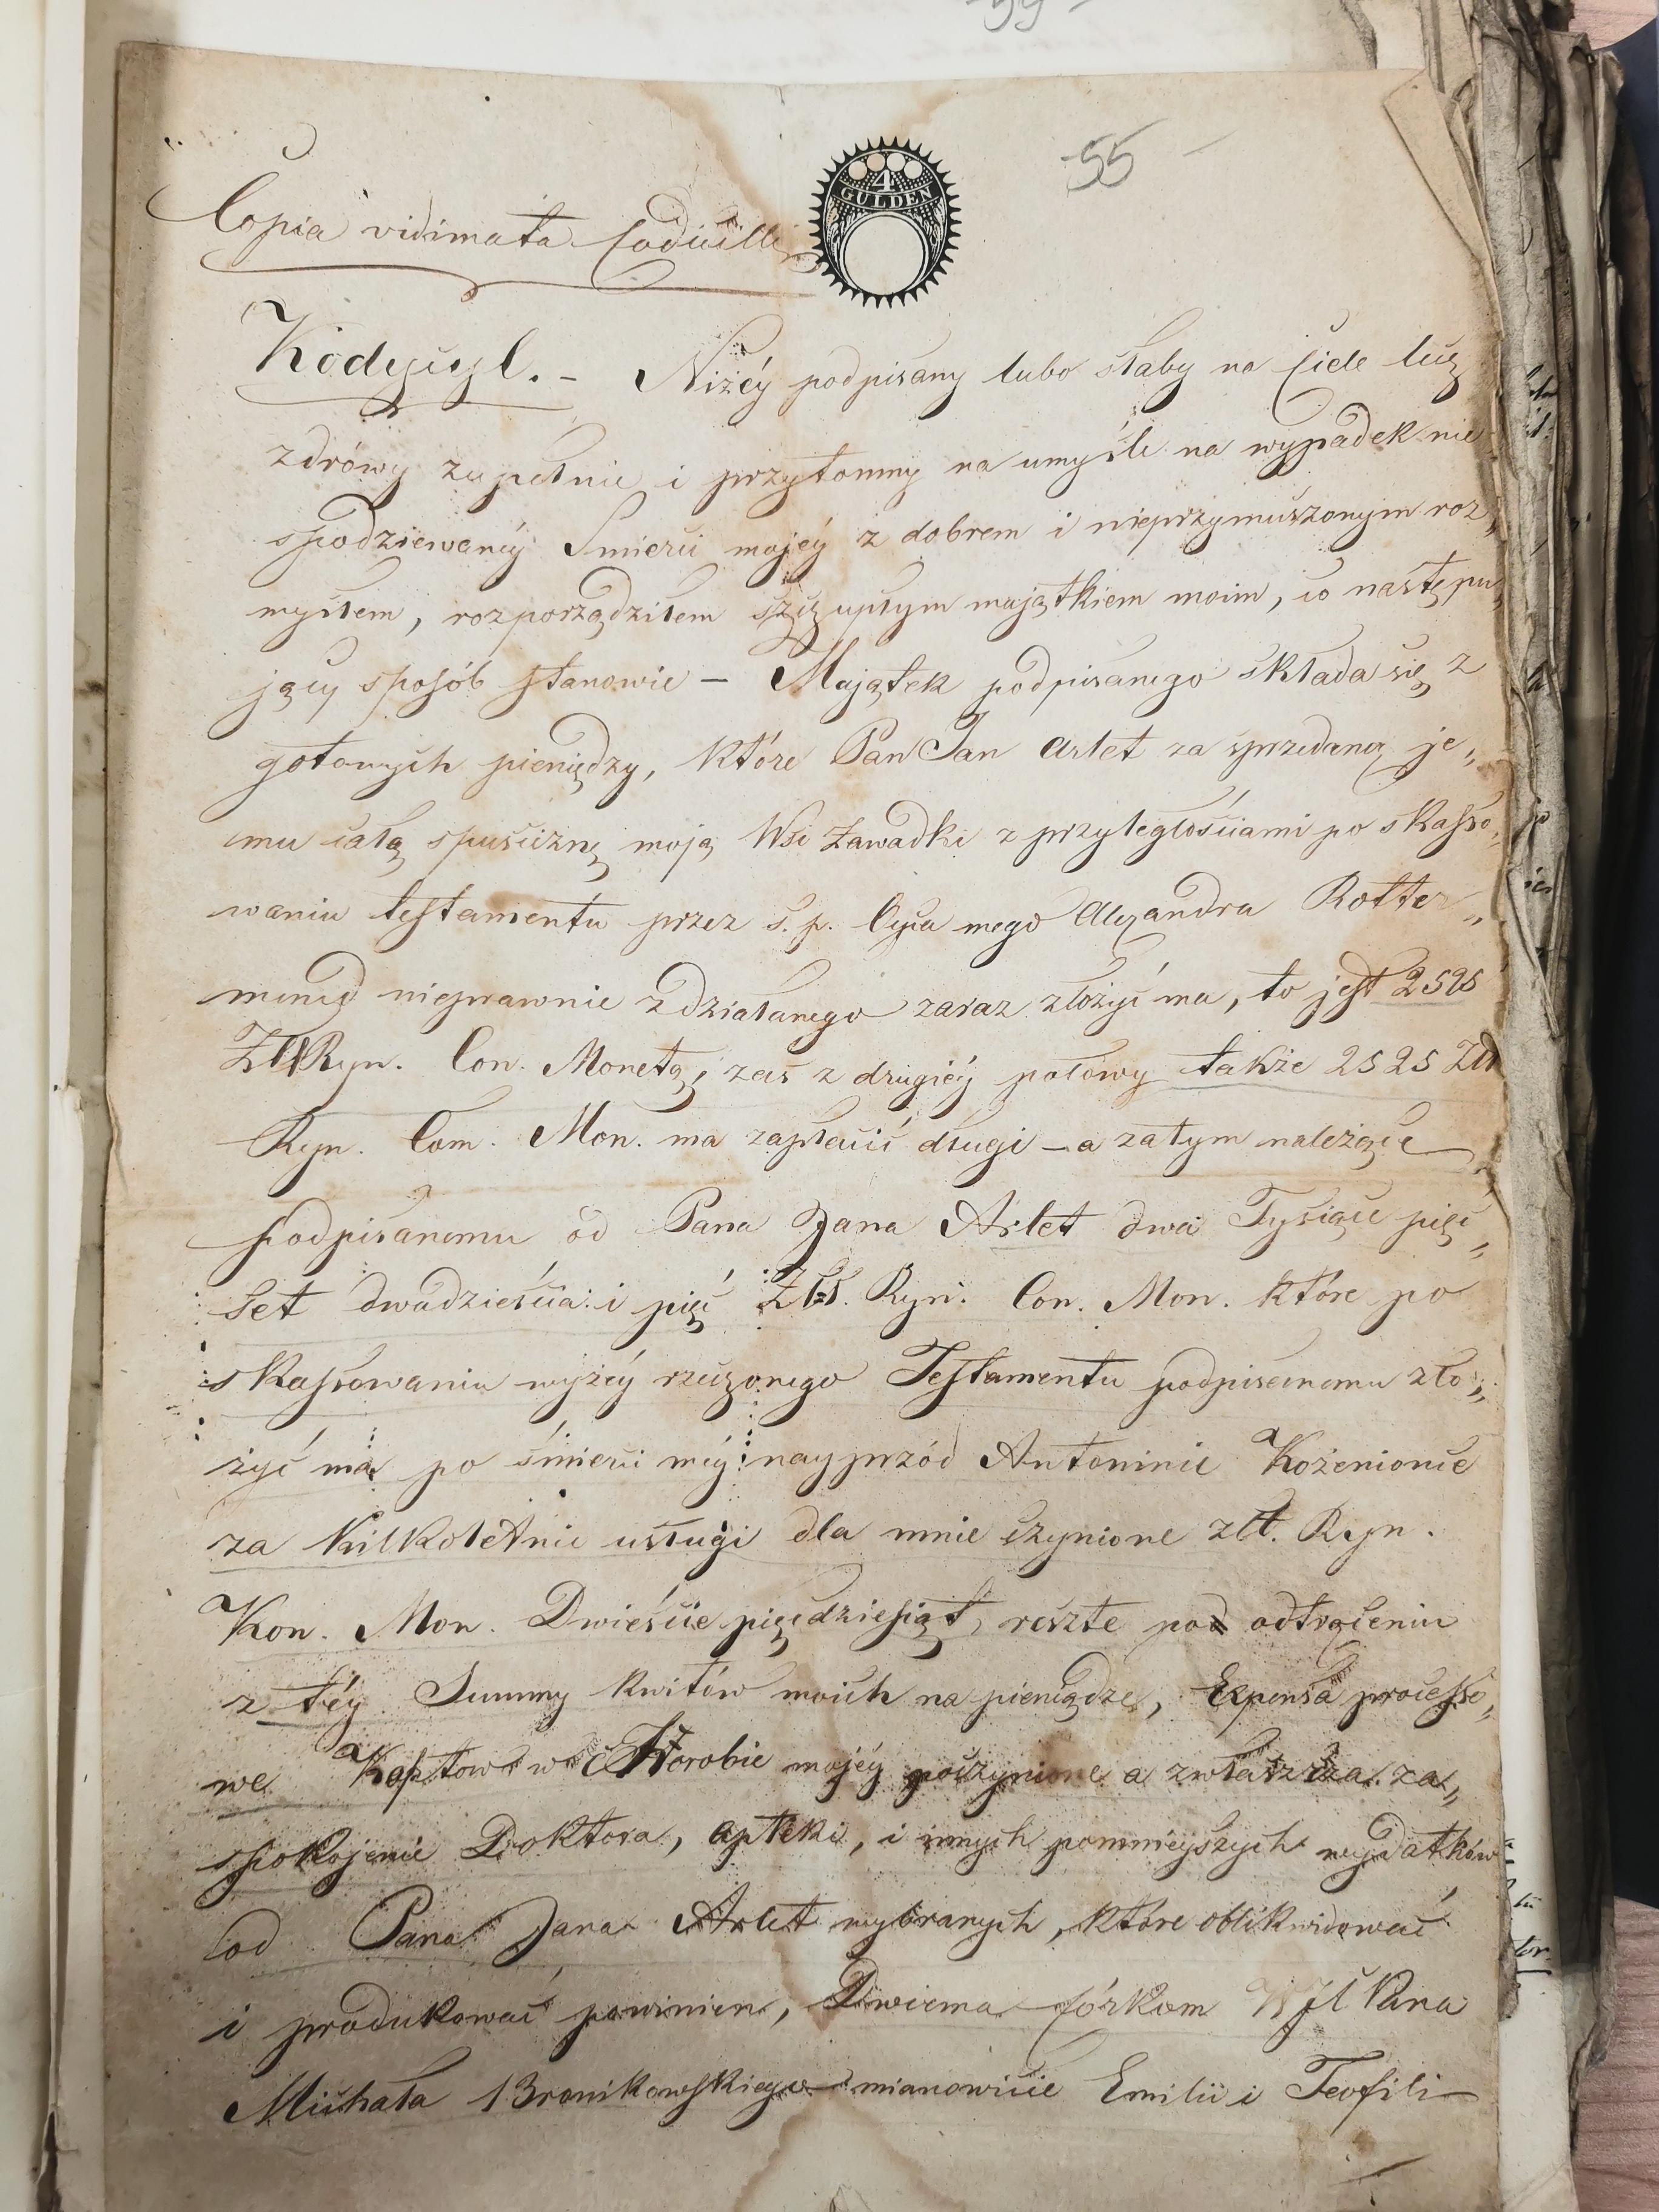 55
4
GULDEN
Copia vidimata Codicilli
Kodycyl. – Niżéy podpisany lubo słaby na ciele lecz
zdrówy zupełnie i przytomny na umyśle na wypadek nie
spodziewanéy Smierci mojéy z dobrem i nieprzymuszonym roz„
mysłem, rozporządziłem szczupłym majątkiem moim, co następu„
jący sposób stanowie – Majątek podpisanego składa się z
gotowych pieniędzy, które Pan Jan Arlet za sprzedaną je„
mu całą spuściznę moją Wsi Zawadki z przyległościami po skasso„
waniu testamentu przez ś. p. Oyca mego Alexandra Rotter„
mund nieprawnie zdziałanego zaraz złożyć ma, to jest 2525
Złł Ryn. Con. Monetą, zaś z drugiéy połowy także 2525 Złł
Ryn. Com. Mon. ma zapłacić długi – a zatym należące
podpisanemu od Pana Jana Arlet dwa Tysiące pięć„
set dwadzieścia i pięć Złł. Ryn. Con. Mon. które po
skassowaniu wyżéy rzeczonego Testamentu podpisanemu zło„
żyć ma po śmierci méy nayprzód Antoninie Kożenionce
za kilkoletnie usługi dla mnie czynione złł. Ryn.
Kon. Mon. Dwieście pięćdziesiąt, reszte pod odtrąceniu
z téy Summy kwitów moich na pieniądze, Expensa processo„
we Kosztow w Chorobie mojéy poczynione a zwłaszcza za„
spokojenie Doktora, apteki, i innych pomnieyszych wydatków
od Pana Jana Arlet wybranych, które oblikwidować
i produkować powinien, Dwiema córkom WJł Pana
Michała Bronikowskiego mianowicie Emilii i Teofili